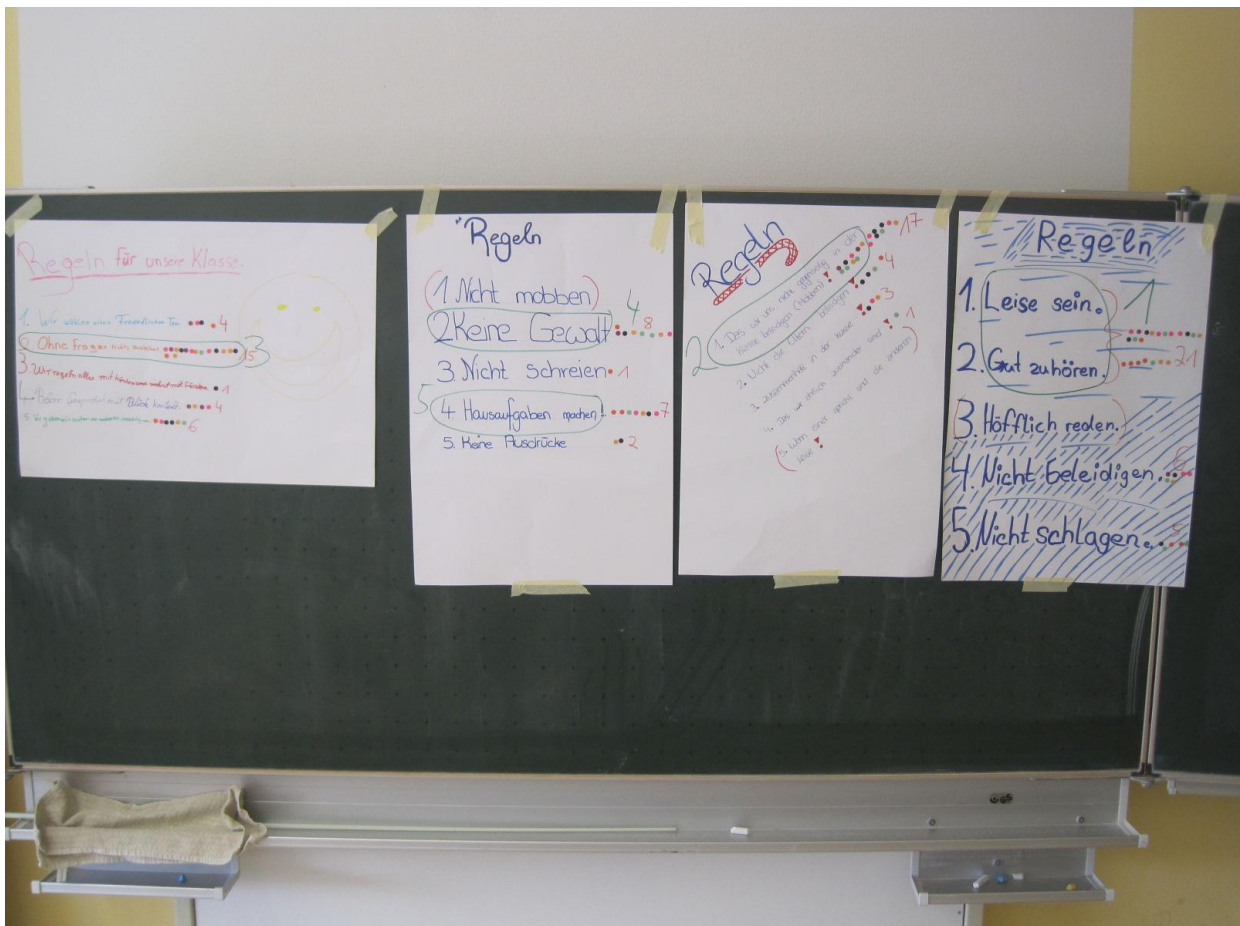 Regeln für unsere Klasse.
1. Wir wählen einen Freundlichen Ton 4
2. Ohne Fragen nichts 15 3
3. Wir regeln alles mit 1
4. Beim Gespräch mit Blick kontakt. 4
5. 6
Regeln
(1. Nicht mobben)
2 Keine Gewalt 8 4
3. Nicht schreien 1
5
4. Hausaufgaben machen! 7
5. Keine Ausdrücke 2
Regeln
2
1. Das wir uns nicht gegenseitig in der 17
Klasse beleidigen (Mobben)
2. Nicht die Eltern beleidigen 4
3. Zusammenhalt in der Klasse 3
4. Das wir ehrlich zueinander sind 1
(5. Wenn einer spricht sind die anderen)
leise
Regeln
1. Leise sein. 1
2. Gut zuhören. 21
(3. Höfflich reden.)
4. Nicht beleidigen.
5. Nicht schlagen. 5